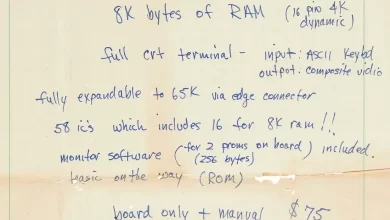 8K bytes of RAM (16 pin 4K
dynamic)
full crt terminal - input: ASCII Keybd
output: composite vidio
fully expandable to 65K via edge connector
58 ic's which includes 16 for 8K ram!!
monitor software (for 2 proms on board) included.
(256 bytes)
basic on the way (ROM)
board only + manual $75